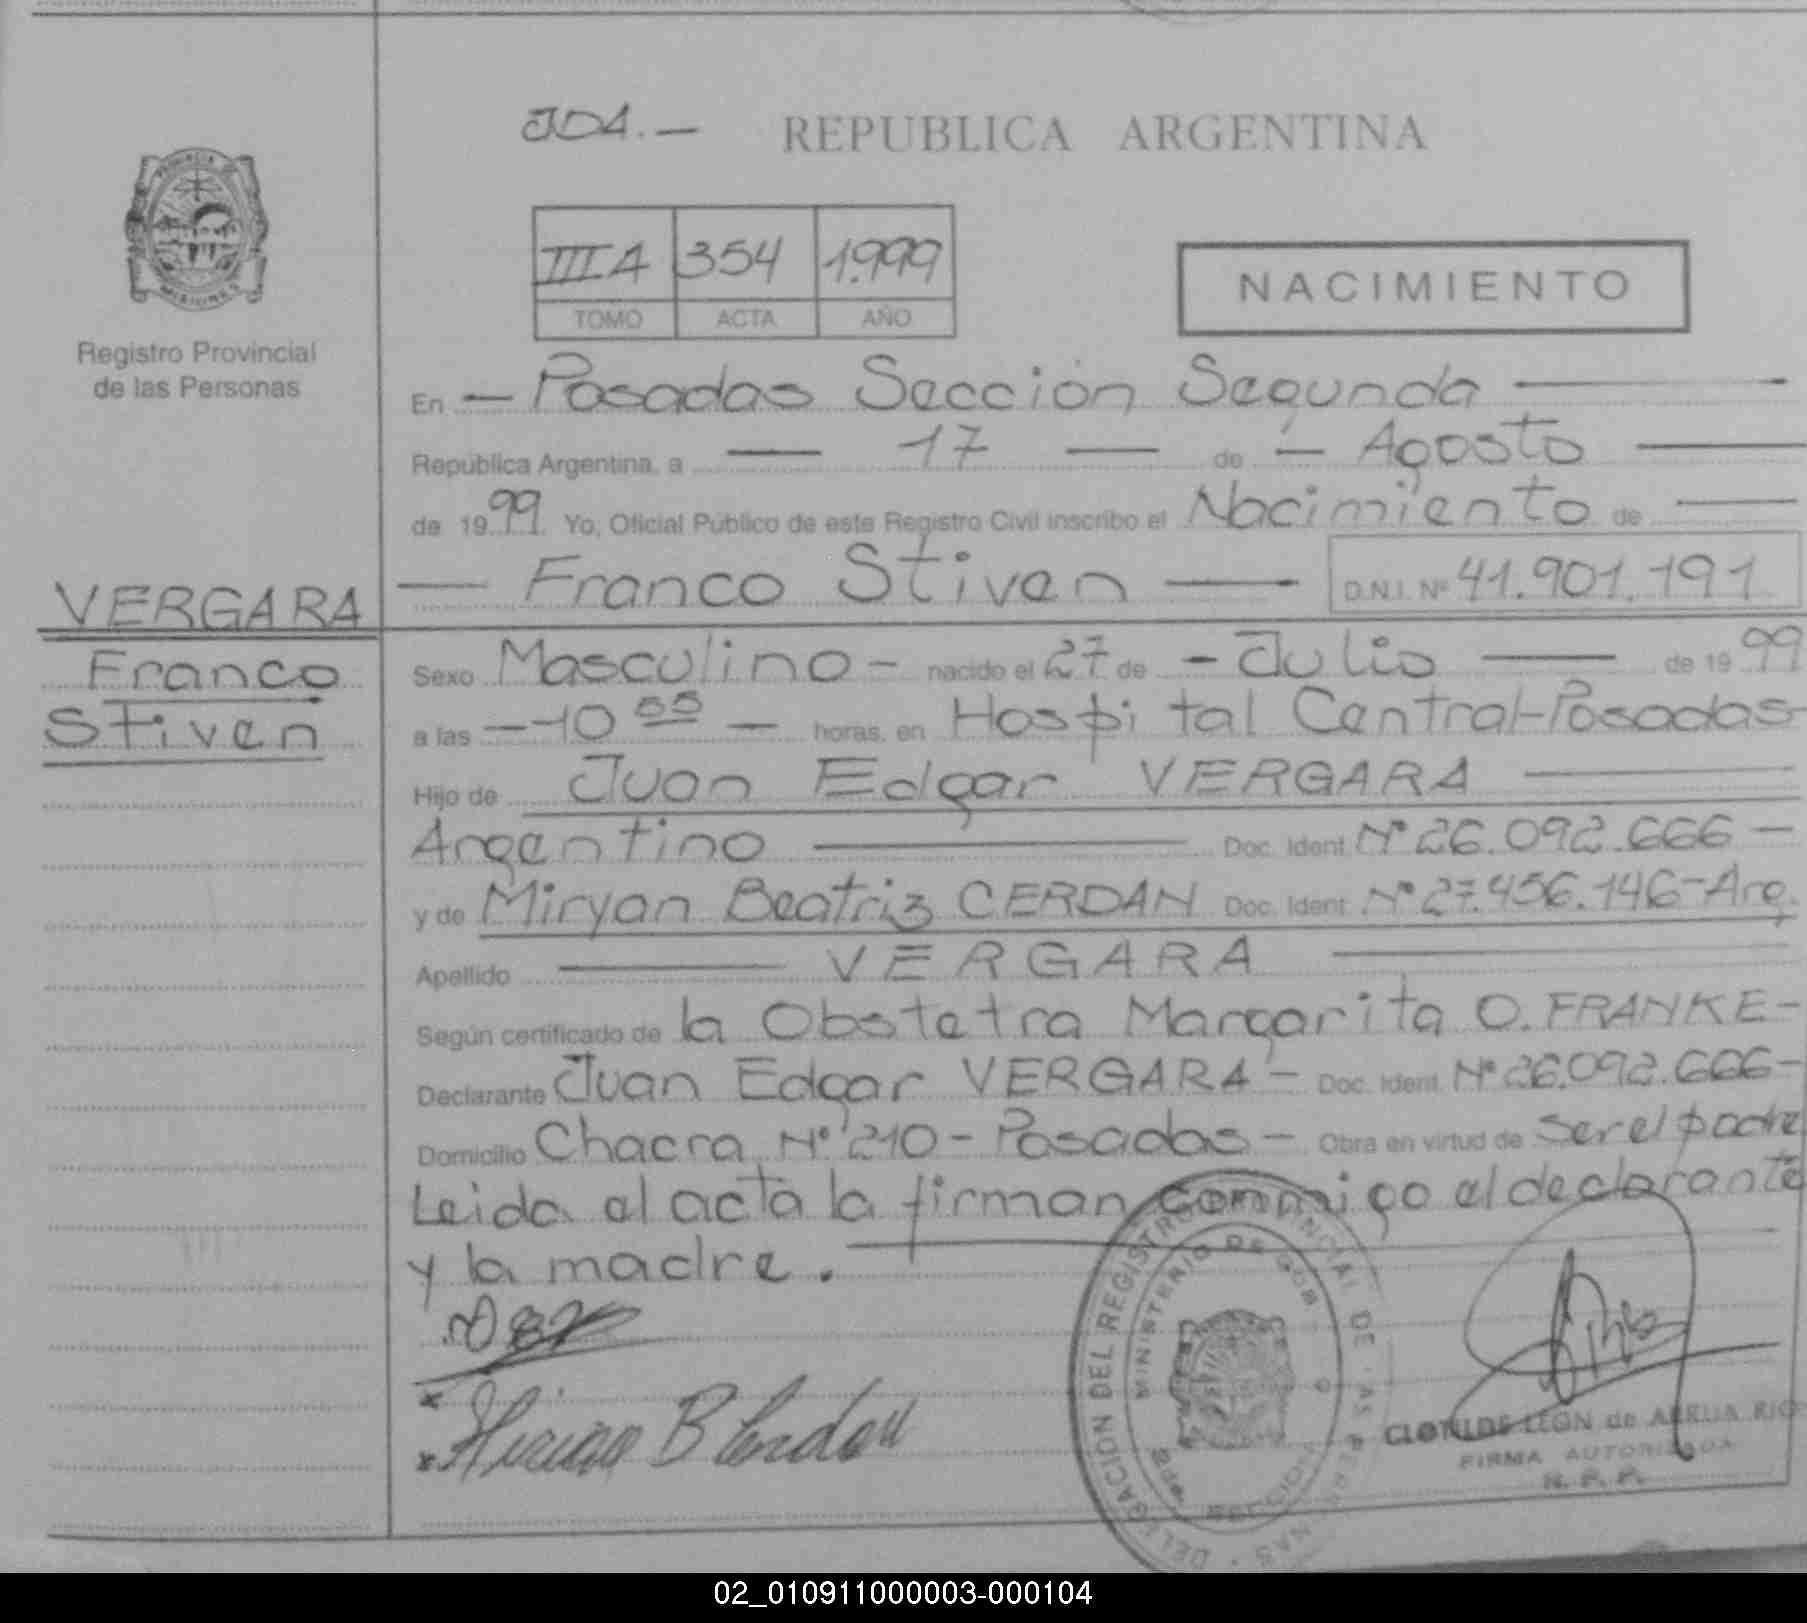 JD4.— REPUBLICA ARGENTINA
PROVINCIA DE
MISIONES
Registro Provincial
de las Personas
III A 354 1.999
TOMO ACTA AÑO
NACIMIENTO
En — Posadas Sección Segunda —
República Argentina, a — 17 — de — Agosto —
de 1999 Yo, Oficial Público de este Registro Civil inscribo el Nacimiento de —
— Franco Stiven — D.N.I. Nº 41.901.191
VERGARA
Franco
Stiven
Sexo Masculino - nacido el 27 de - Julio — de 1999
a las — 10 55 — horas, en Hospital Central-Posadas-
Hijo de Juan Edgar VERGARA —
Argentino — Doc. Ident. Nº 26.092.666 —
y de Miryan Beatriz CERDAN Doc. Ident. Nº 27.456.146-Arg.
Apellido — VERGARA —
Según certificado de la Obstetra Margarita O. FRANKE-
Declarante Juan Edgar VERGARA - Doc. Ident. Nº 26.092.666-
Domicilio Chacra Nº 210 - Posadas - Obra en virtud de ser el padre
Leida el acta la firman conmigo el declarante
y la madre. —
DELEGACION DEL REGISTRO PROVINCIAL DE LAS PERSONAS
MINISTERIO DE GOB.
SECCION
CLOTILDE LEON de
FIRMA AUTORIZADA
R. P. P.
02_010911000003-000104